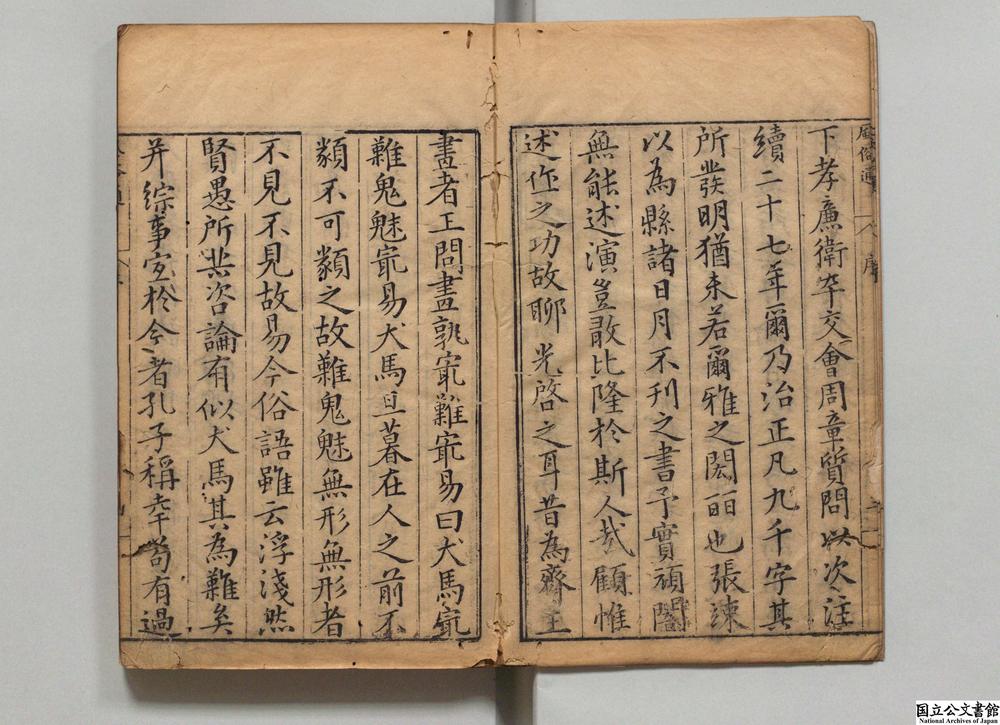 風俗通 序
下孝廉衛卒交會周章質問以次注
續二十七年爾乃治正凡九千字其
所發明猶未若爾雅之閎麗也張竦
以為縣諸日月不刊之書予實頑闇
無能述演豈敢比隆於斯人哉顧惟
述作之功故聊光啓之耳昔為齊王
畫者王問畫孰㝡難㝡易曰犬馬㝡
難鬼魅㝡易犬馬旦暮在人之前不
類不可類之故難鬼魅無形無形者
不見不見故易今俗語雖云浮淺然
賢愚所共咨論有似犬馬其為難矣
并綜事宜於今者孔子稱幸苟有過
国立公文書館
National Archives of Japan